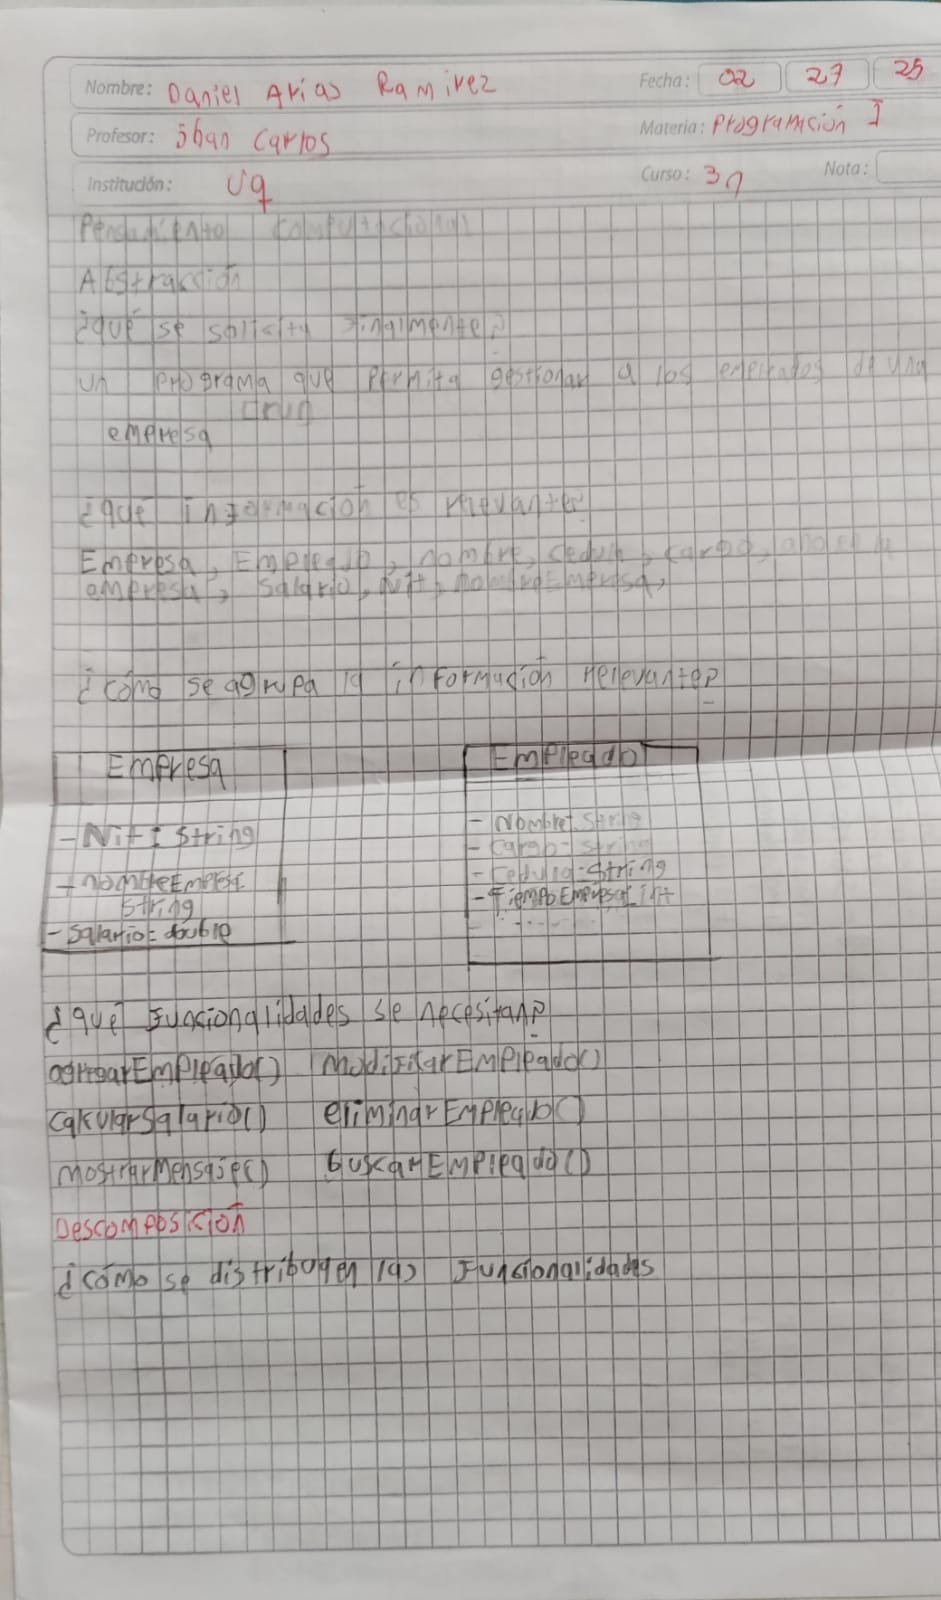 Nombre: Daniel Arias Ramirez Fecha: 02 27 25
Profesor: Jhan Carlos Materia: Programación I
Institución: Uq Curso: 3n Nota:
Pensamiento computacional
Abstracción
¿qué se solicita finalmente?
un programa que permita gestionar a los empleados de una
crud
empresa
¿qué información es relevante?
Empresa, Empleado, nombre, cedula, cargo,
empresa, salario, Nit, nombreEmpresa,
¿cómo se agrupa la información relevante?
Empresa
- Nit: String
- nombreEmpresa
String
- Salario: double
Empleado
- Nombre: String
- cargo: String
- cedula: String
- TiempoEmpresa: int
¿qué funcionalidades se necesitan?
agregarEmpleado() modificarEmpleado()
calcularSalario() eliminarEmpleado()
mostrarMensaje() buscarEmpleado()
Descomposición
¿cómo se distribuyen las funcionalidades